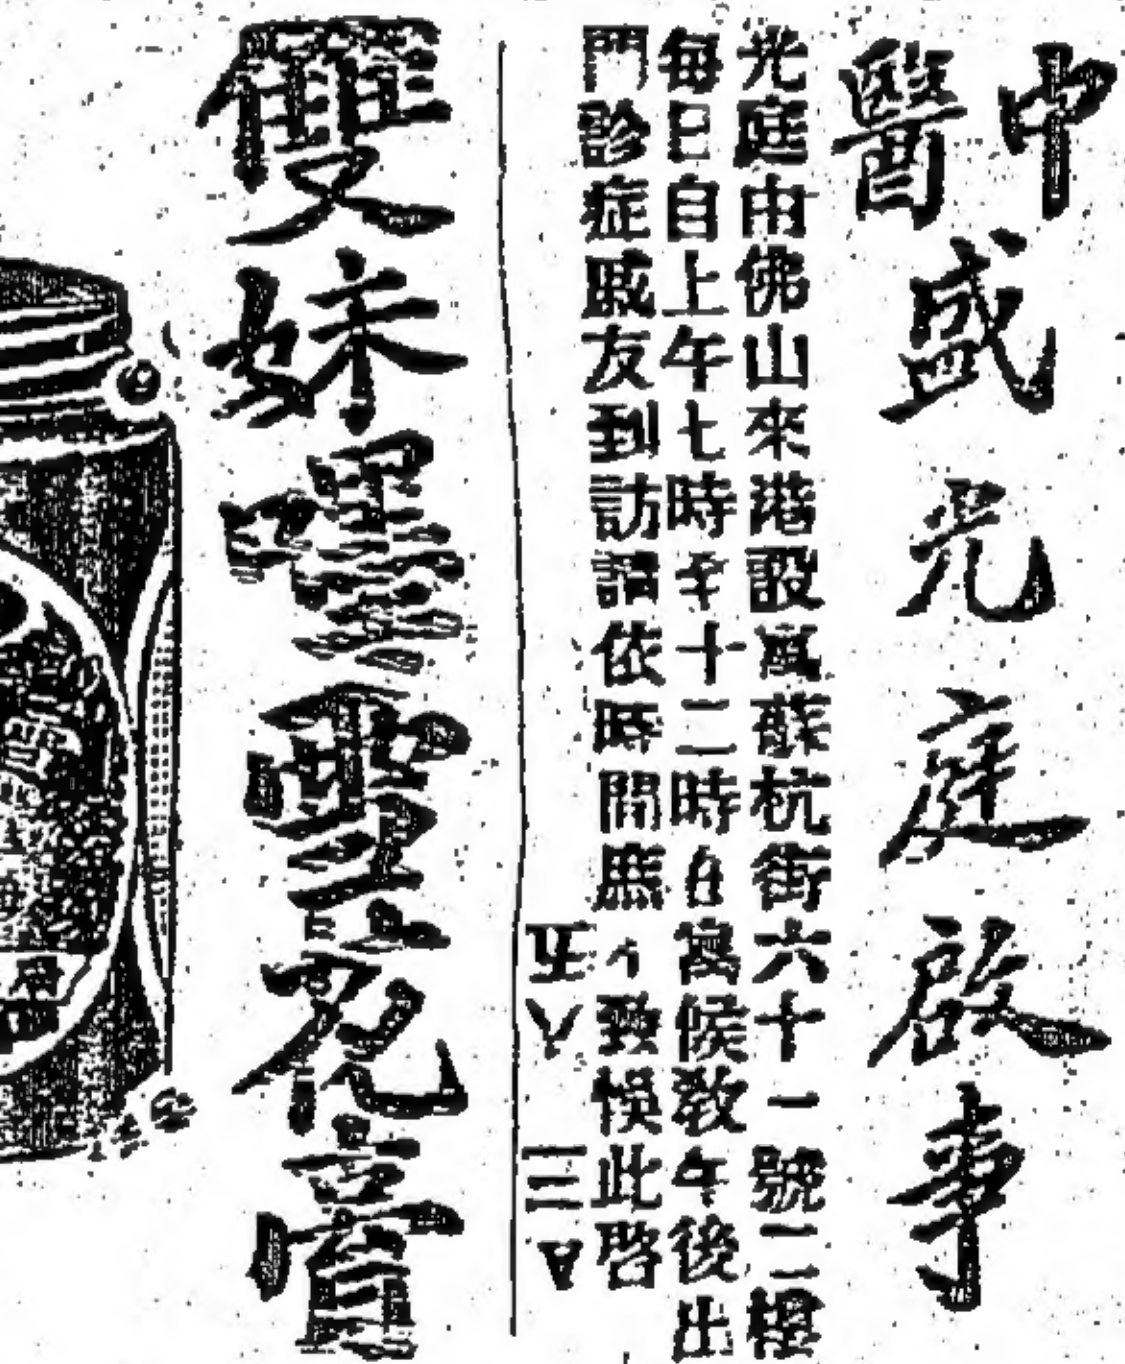 中醫盛光庭啟事
光庭由佛山來港設寓蘇杭街六十一號二樓
每日自上午七時至十二時在寓候教午後出
門診症戚友到訪請依時間庶不致悞此啓
雙妹嚜雪花膏